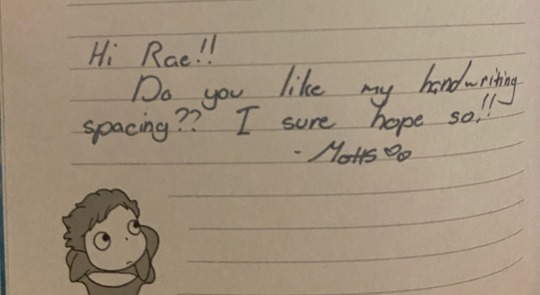 Hi Rae!!
Do you like my handwriting
spacing?? I sure hope so!!
- Motts♡♡